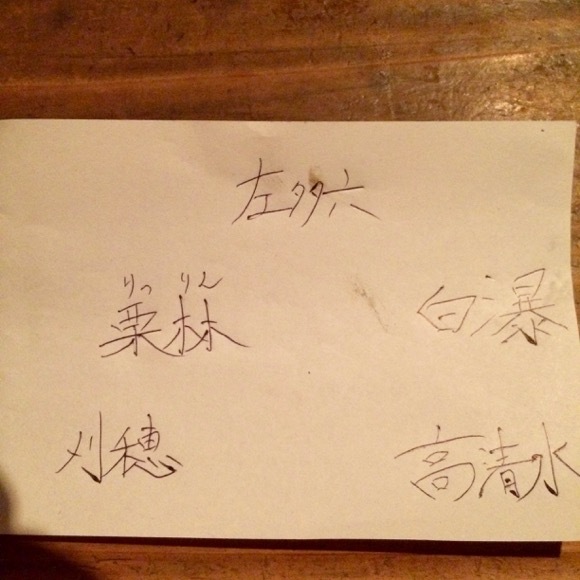 左多六
りつりん
栗林 白瀑
刈穂 高清水